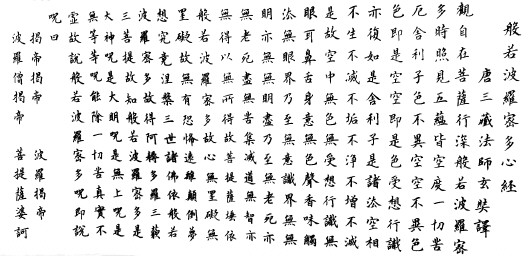 般若波羅蜜多心經
唐三藏法師玄奘譯
觀自在菩薩行深般若波羅蜜
多時照見五蘊皆空度一切苦
厄舍利子色不異空空不異色
色即是空空即是色受想行識
亦復如是舍利子是諸法空相
不生不滅不垢不淨不增不減
是故空中無色無受想行識無
眼耳鼻舌身意無色聲香味觸
法無眼界乃至無意識界無無
明亦無無明盡乃至無老死亦
無老死盡無苦集滅道無智亦
無得以無所得故菩提薩埵依
般若波羅蜜多故心無罣礙無
罣礙故無有恐怖遠離顛倒夢
想究竟涅槃三世諸佛依般若
波羅蜜多故得阿耨多羅三藐
三菩提故知般若波羅蜜多是
大神呪是大明呪是無上呪是
無等等呪能除一切苦真實不
虛故說般若波羅蜜多呪即說
呪曰
揭帝揭帝 波羅揭帝
波羅僧揭帝 菩提薩婆訶